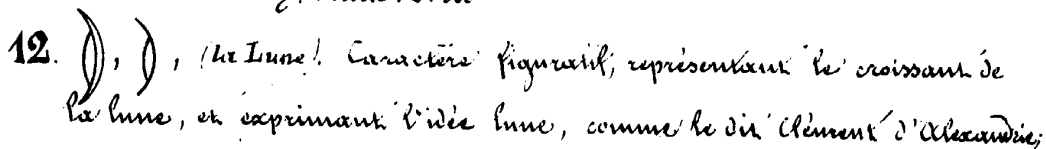 12. ), ), (la Lune). Caractère figuratif, représentant le croissant de
la lune, et exprimant l'idée lune, comme le dit Clément d'Alexandrie;